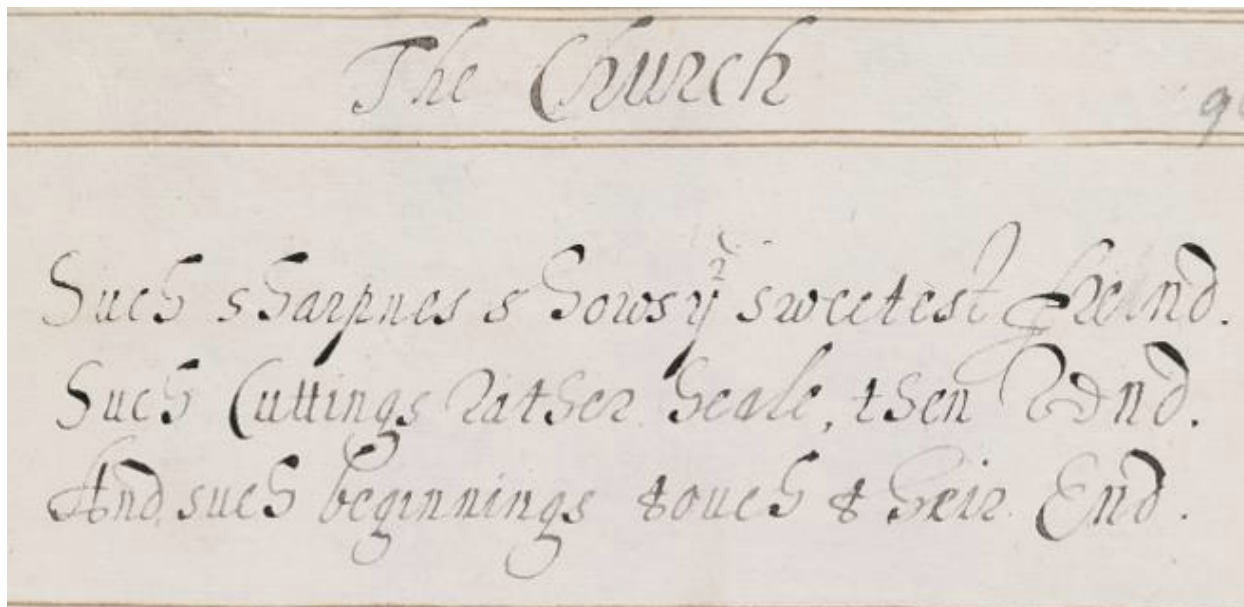 The Church
Such sharpnes shows yᵉ sweetest Freind.
Such Cuttings rather heale, then Rend.
And such beginnings touch their End.